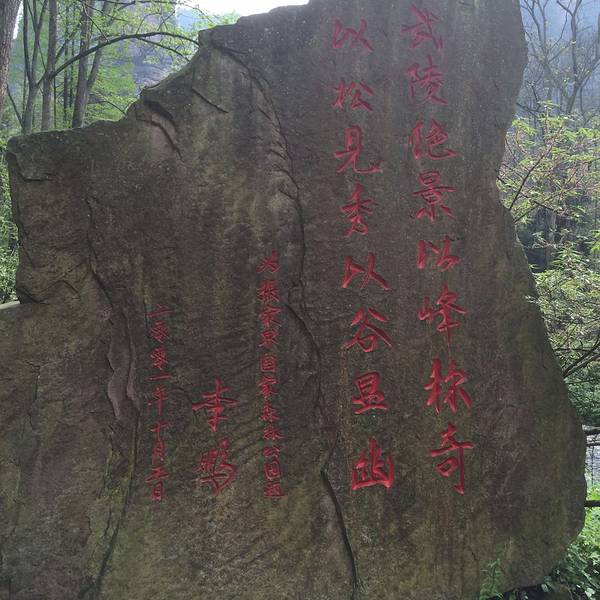 武陵绝景以峰称奇
以松见秀以谷显幽
为张家界国家森林公园题
李鹏
二零零一年十月五日